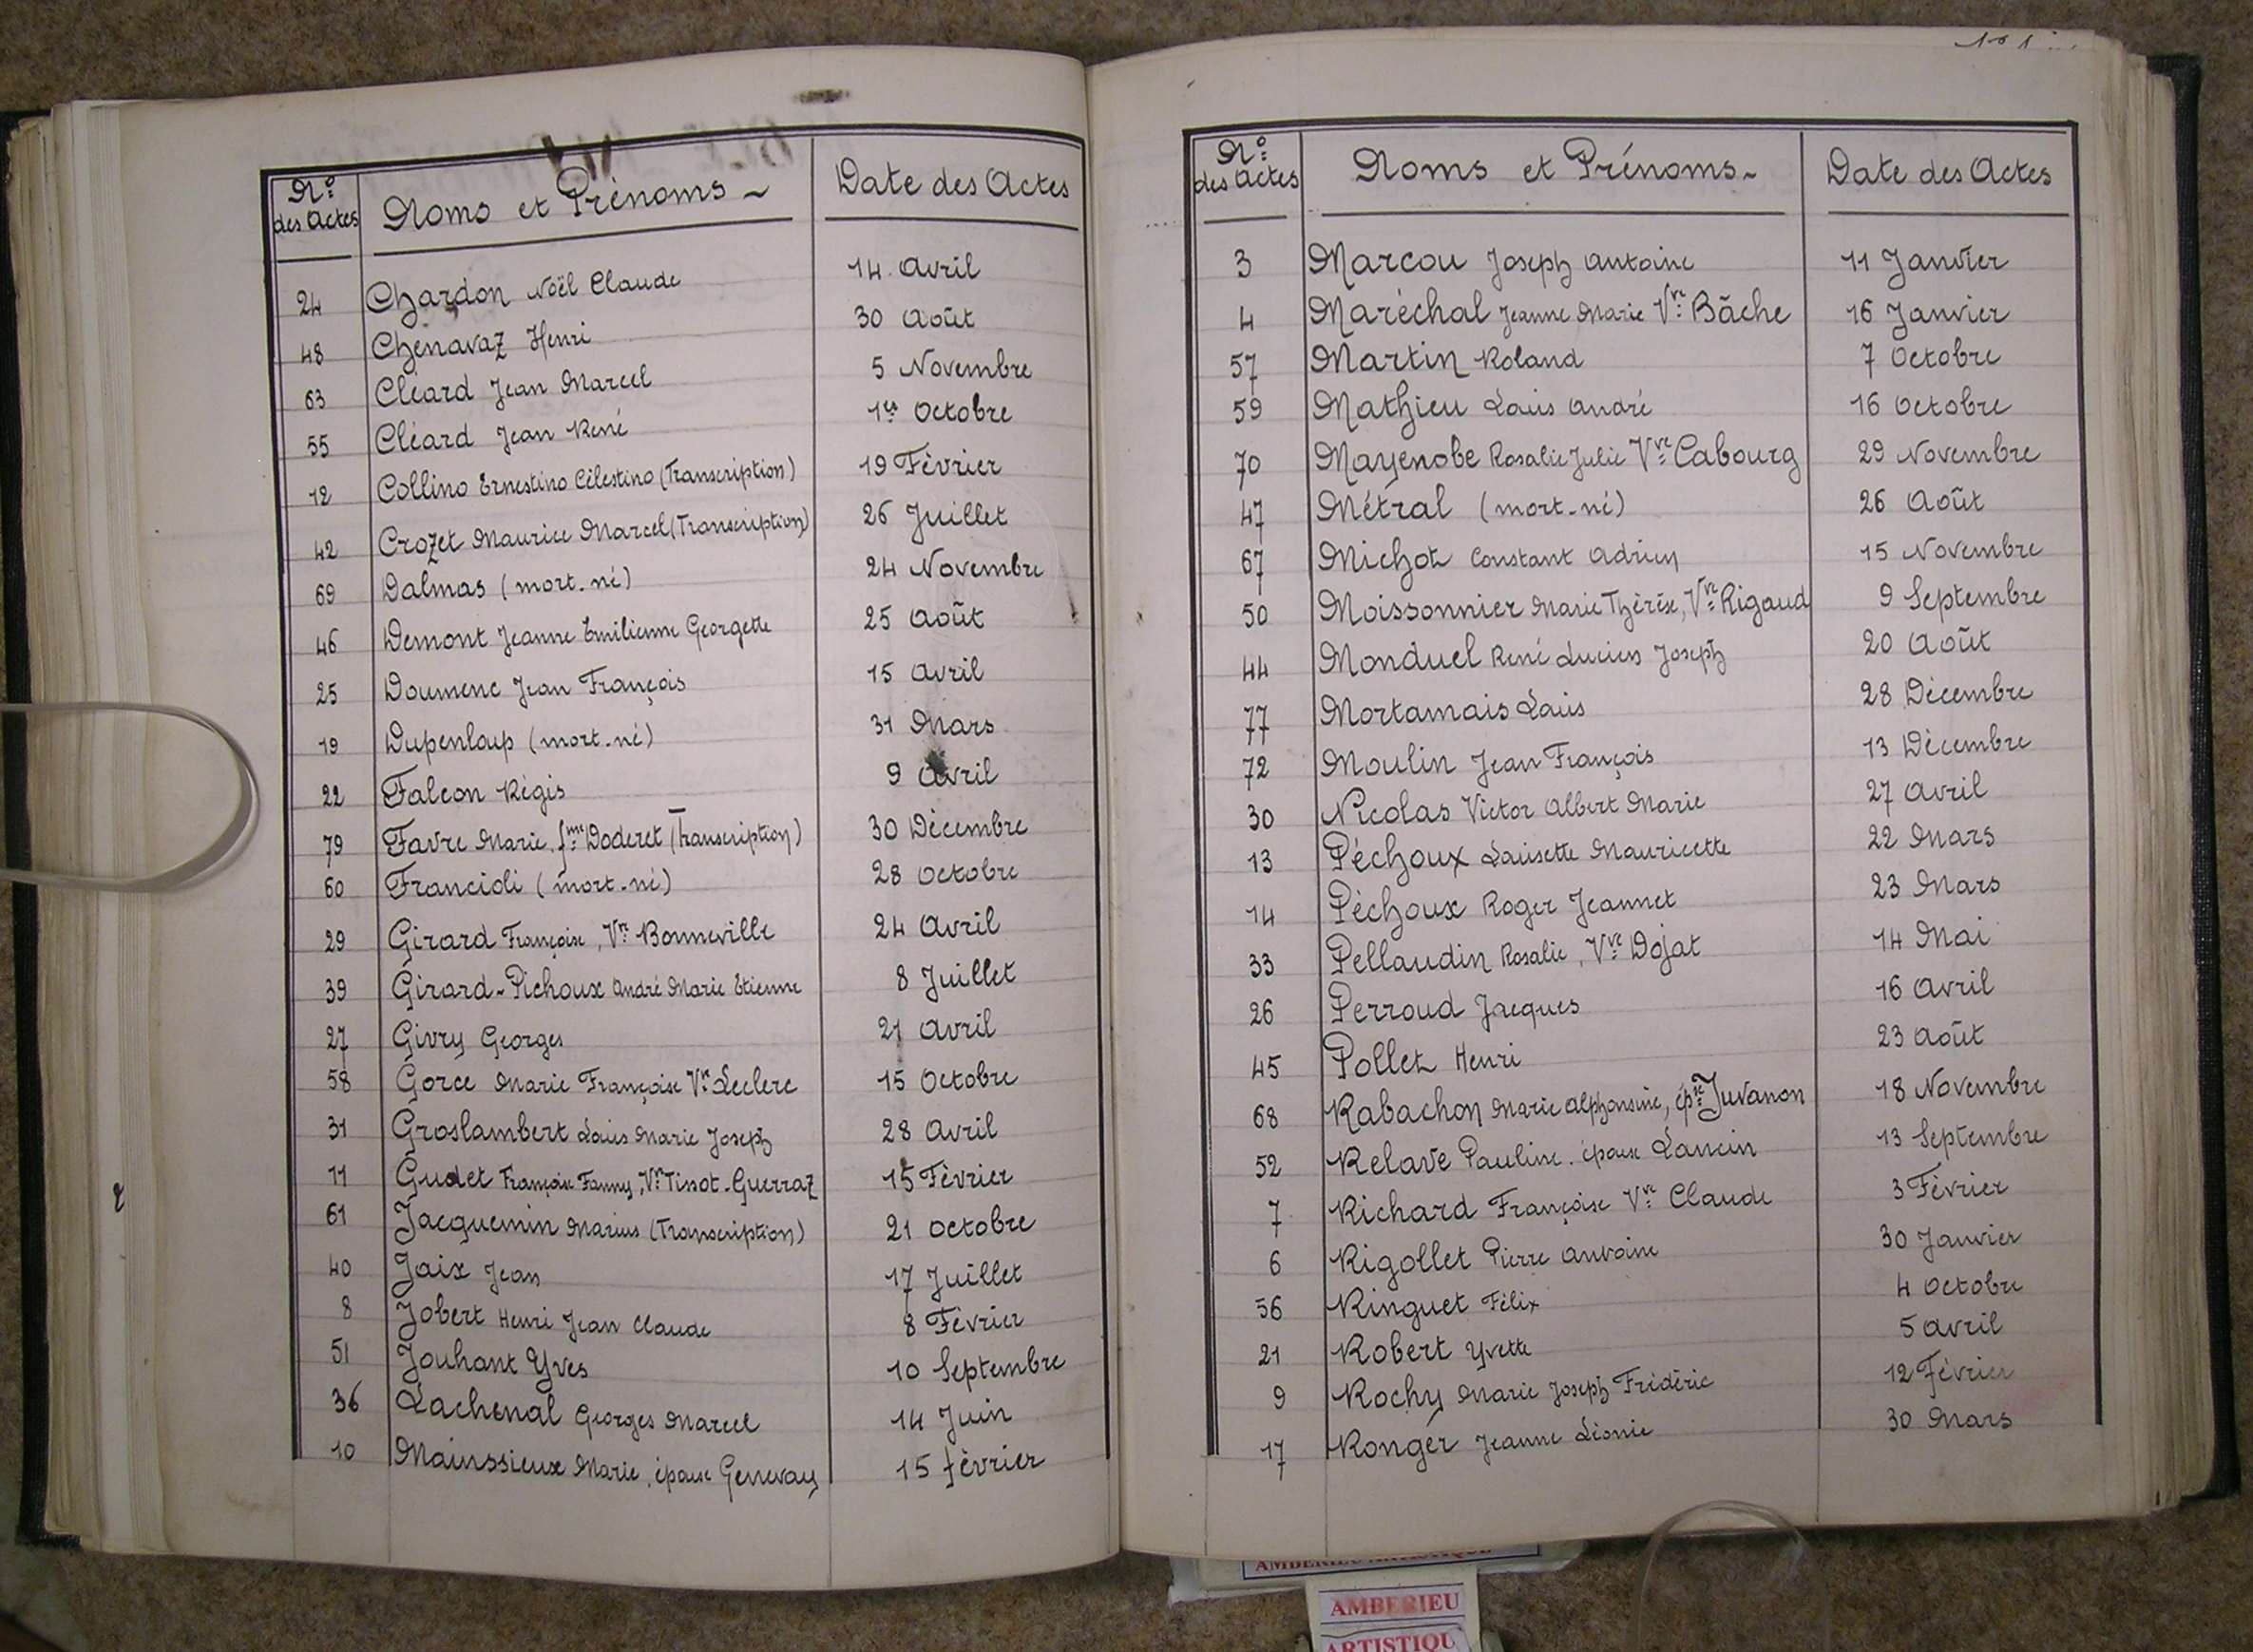 Nº des Actes Noms et Prénoms Date des Actes
24 Chardon Noël Claude 14 Avril
48 Chenavaz Henri 30 Août
63 Cléard Jean Marcel 5 Novembre
55 Cléard Jean René 1er Octobre
12 Collino Ernestino Célestino (Transcription) 19 Février
42 Crozet Maurice Marcel (Transcription) 26 Juillet
69 Dalmas (mort-né) 24 Novembre
46 Demont Jeanne Emilienne Georgette 25 Août
25 Doumenc Jean François 15 Avril
19 Dupenloup (mort-né) 31 Mars
22 Falcon Régis 9 Avril
79 Favre Marie, fme Doderet (Transcription) 30 Décembre
60 Francioli (mort-né) 28 Octobre
29 Girard Françoise, Vve Bonneville 24 Avril
39 Girard-Pichoux André Marie Etienne 8 Juillet
27 Givry Georges 21 Avril
58 Gorce Marie Françoise Vve Leclerc 15 Octobre
31 Groslambert Louis Marie Joseph 28 Avril
11 Gudet Françoise Fanny, Vve Tissot-Guerraz 15 Février
61 Jacquemin Marius (Transcription) 21 Octobre
40 Jaix Jean 17 Juillet
8 Jobert Henri Jean Claude 8 Février
51 Jouhant Yves 10 Septembre
36 Lachenal Georges Marcel 14 Juin
10 Mainssieux Marie, épouse Genevay 15 février
Nº des Actes Noms et Prénoms Date des Actes
3 Marcou Joseph Antoine 11 Janvier
4 Maréchal Jeanne Marie Vve Bâche 16 Janvier
57 Martin Roland 7 Octobre
59 Mathieu Louis André 16 Octobre
70 Mayenobe Rosalie Julie Vve Cabourg 29 Novembre
47 Métral (mort-né) 26 Août
67 Michot Constant Adrien 15 Novembre
50 Moissonnier Marie Thérèse, Vve Rigaud 9 Septembre
44 Monduel René Lucien Joseph 20 Août
77 Mortamais Louis 28 Décembre
72 Moulin Jean François 13 Décembre
30 Nicolas Victor Albert Marie 27 Avril
13 Péchoux Louisette Mauricette 22 Mars
14 Péchoux Roger Jeannet 23 Mars
33 Pellaudin Rosalie, Vve Dojat 14 Mai
26 Perroud Jacques 16 Avril
45 Pollet Henri 23 Août
68 Rabachon Marie Alphonsine, épse Juvanon 18 Novembre
52 Relave Pauline. épouse Lancin 13 Septembre
7 Richard Françoise Vve Claude 3 Février
6 Rigollet Pierre Antoine 30 Janvier
56 Ringuet Félix 4 Octobre
21 Robert Yvette 5 Avril
9 Rochy Marie Joseph Frédéric 12 Février
17 Ronger Jeanne Léonie 30 Mars
AMBERIEU ARTISTIQUE
AMBERIEU
ARTISTIQU